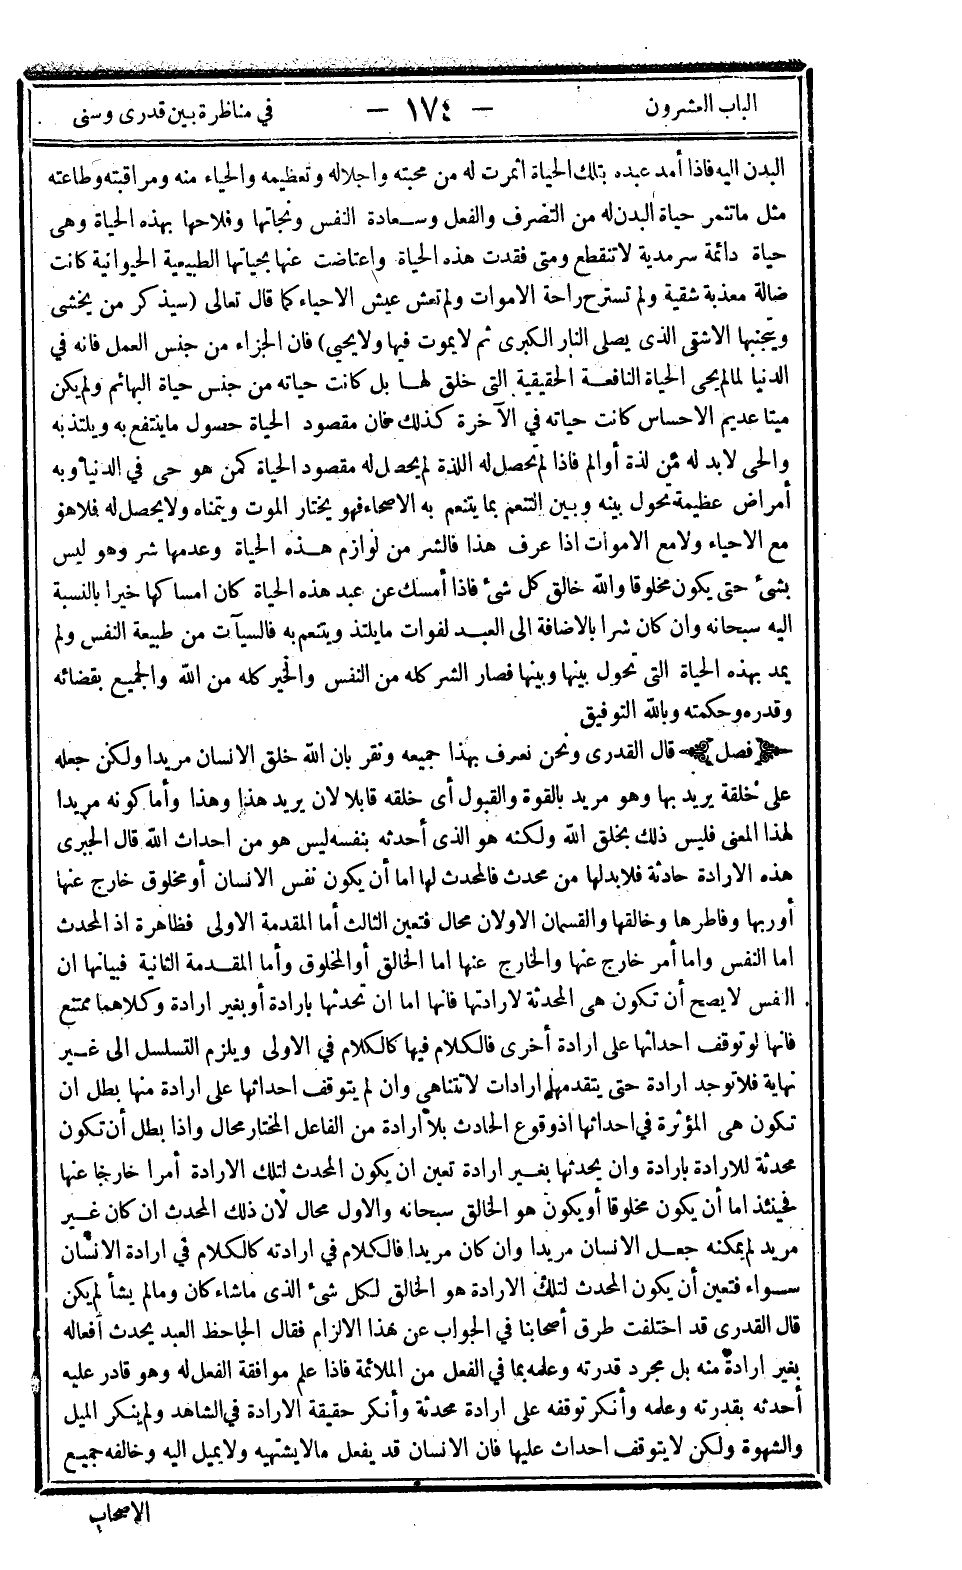 الباب العشرون — ١٧٤ — في مناظرة بين قدرى وسنى
البدن اليه فاذا أمد عبده بتلك الحياة اثمرت له من محبته واجلاله وتعظيمه والحياء منه ومراقبته وطاعته
مثل ماتثمر حياة البدن له من التصرف والفعل وسعادة النفس ونجاتها وفلاحها بهذه الحياة وهى
حياة دائمة سرمدية لاتنقطع ومتى فقدت هذه الحياة واعتاضت عنها بحياتها الطبيعية الحيوانية كانت
ضالة معذبة شقية ولم تسترح راحة الاموات ولم تعش عيش الاحياء كما قال تعالى (سيذكر من يخشى
ويتجنبها الاشقى الذى يصلى النار الكبرى ثم لايموت فيها ولايحيى) فان الجزاء من جنس العمل فانه في
الدنيا لمالم يحى الحياة النافعة الحقيقية التى خلق لها بل كانت حياته من جنس حياة البهائم ولم يكن
ميتا عديم الاحساس كانت حياته في الآخرة كذلك فان مقصود الحياة حصول ماينتفع به ويلتذ به
والحى لابد له من لذة أوالم فاذا لم تحصل له اللذة لم يحصل له مقصود الحياة كمن هو حى في الدنيا وبه
أمراض عظيمة تحول بينه وبين التنعم بما يتنعم به الاصحاء فهو يختار الموت ويتمناه ولايحصل له فلاهو
مع الاحياء ولامع الاموات اذا عرف هذا فالشر من لوازم هذه الحياة وعدمها شر وهو ليس
بشئ حتى يكون مخلوقا والله خالق كل شئ فاذا أمسك عن عبد هذه الحياة كان امساكها خيرا بالنسبة
اليه سبحانه وان كان شرا بالاضافة الى العبد لفوات مايلتذ ويتنعم به فالسيآت من طبيعة النفس ولم
يمد بهذه الحياة التى تحول بينها وبينها فصار الشر كله من النفس والخير كله من الله والجميع بقضائه
وقدره وحكمته وبالله التوفيق
فصل قال القدرى ونحن نعرف بهذا جميعه ونقر بان الله خلق الانسان مريدا ولكن جعله
على خلقة يريد بها وهو مريد بالقوة والقبول أى خلقه قابلا لان يريد هذا وهذا وأما كونه مريدا
لهذا المعنى فليس ذلك بخلق الله ولكنه هو الذى أحدثه بنفسه ليس هو من احداث الله قال الجبرى
هذه الارادة حادثة فلابدلها من محدث فالمحدث لها اما أن يكون نفس الانسان أومخلوق خارج عنها
أوربها وفاطرها وخالقها والقسمان الاولان محال فتعين الثالث أما المقدمة الاولى فظاهرة اذ المحدث
اما النفس واما أمر خارج عنها والخارج عنها اما الخالق أوالمخلوق وأما المقدمة الثانية فبيانها ان
النفس لايصح أن تكون هى المحدثة لارادتها فانها اما ان تحدثها بارادة أوبغير ارادة وكلاهما ممتنع
فانها لوتوقف احداثها على ارادة أخرى فالكلام فيها كالكلام في الاولى ويلزم التسلسل الى غير
نهاية فلاتوجد ارادة حتى يتقدمها ارادات لاتتناهى وان لم يتوقف احداثها على ارادة منها بطل ان
تكون هى المؤثرة في احداثها اذوقوع الحادث بلا ارادة من الفاعل المختار محال واذا بطل أن تكون
محدثة للارادة بارادة وان يحدثها بغير ارادة تعين ان يكون المحدث لتلك الارادة أمرا خارجا عنها
فحينئذ اما أن يكون مخلوقا أويكون هو الخالق سبحانه والاول محال لان ذلك المحدث ان كان غير
مريد لم يمكنه جعل الانسان مريدا وان كان مريدا فالكلام في ارادته كالكلام في ارادة الانسان
سواء فتعين أن يكون المحدث لتلك الارادة هو الخالق لكل شئ الذى ماشاء كان ومالم يشأ لم يكن
قال القدرى قد اختلفت طرق أصحابنا في الجواب عن هذا الالزام فقال الجاحظ العبد يحدث أفعاله
بغير ارادة منه بل مجرد قدرته وعلمه بما في الفعل من الملائمة فاذا علم موافقة الفعل له وهو قادر عليه
أحدثه بقدرته وعلمه وأنكر توقفه على ارادة محدثة وأنكر حقيقة الارادة في الشاهد ولم ينكر الميل
والشهوة ولكن لايتوقف احداث عليها فان الانسان قد يفعل مالايشتهيه ولايميل اليه وخالفه جميع
الاصحاب